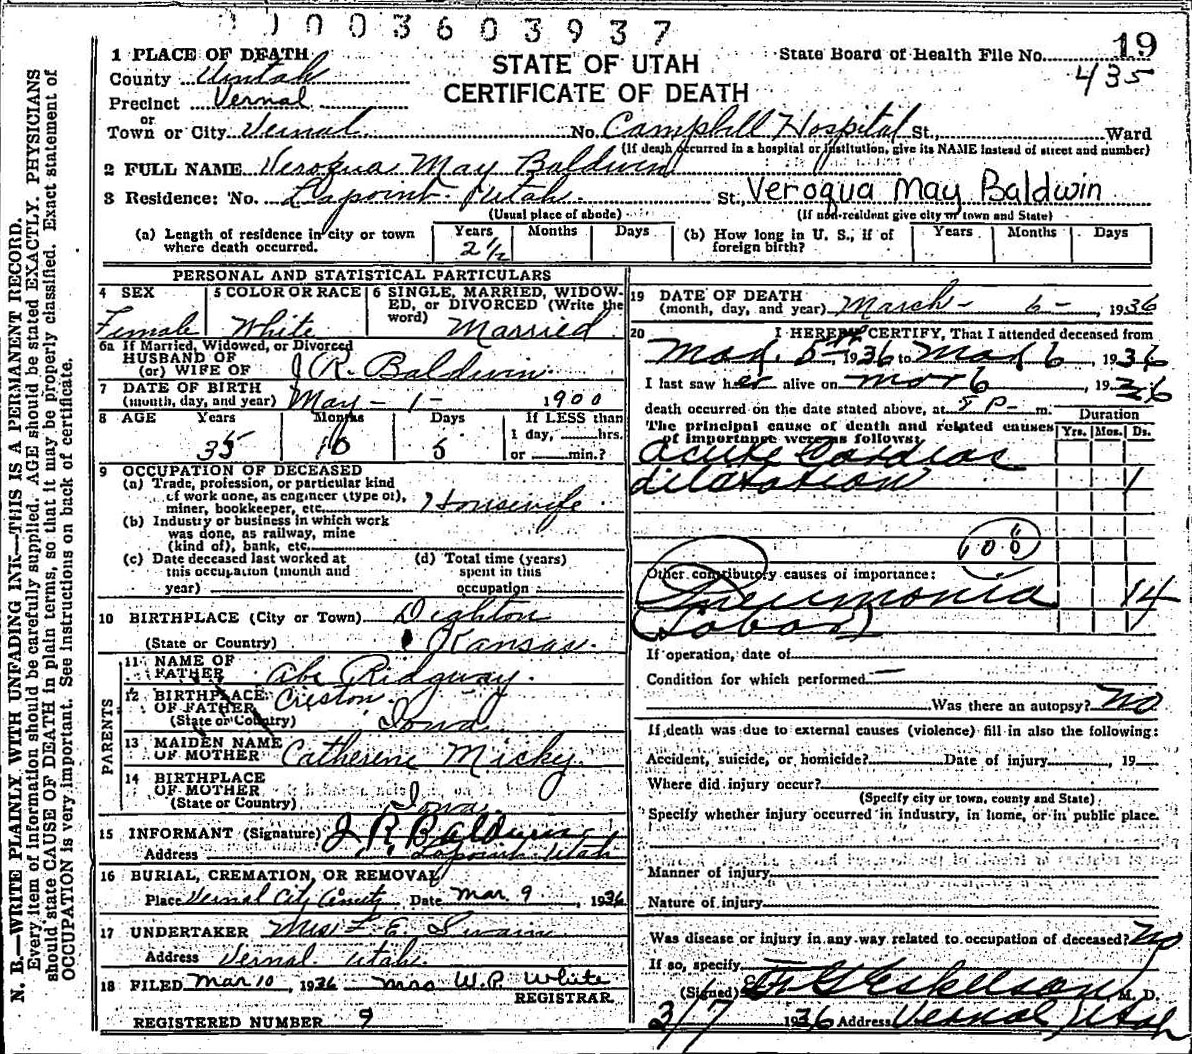 0003603937
19
1 PLACE OF DEATH
STATE OF UTAH
State Board of Health File No. 435
County Uintah
CERTIFICATE OF DEATH
Precinct Vernal
or
Town or City Vernal No. Campbell Hospital St., Ward
(If death occurred in a hospital or institution, give its NAME instead of street and number)
2 FULL NAME Veroqua May Baldwin
3 Residence: No. Lapoint Utah St., Veroqua May Baldwin
(Usual place of abode) (If non-resident give city or town and State)
(a) Length of residence in city or town where death occurred. Years 2½ Months Days
(b) How long in U. S., if of foreign birth? Years Months Days
PERSONAL AND STATISTICAL PARTICULARS
4 SEX Female
5 COLOR OR RACE White
6 SINGLE, MARRIED, WIDOWED, or DIVORCED (Write the word) Married
6a If Married, Widowed, or Divorced
HUSBAND OF
(or) WIFE OF J R. Baldwin
7 DATE OF BIRTH
(month, day, and year) May - 1 - 1900
8 AGE Years 35 Months 10 Days 5 If LESS than 1 day, hrs. or min.?
9 OCCUPATION OF DECEASED
(a) Trade, profession, or particular kind of work done, as engineer (type of), miner, bookkeeper, etc. Housewife
(b) Industry or business in which work was done, as railway, mine (kind of), bank, etc.
(c) Date deceased last worked at this occupation (month and year)
(d) Total time (years) spent in this occupation
10 BIRTHPLACE (City or Town) Dighton
(State or Country) Kansas.
PARENTS
11 NAME OF FATHER Abe Ridgway.
12 BIRTHPLACE OF FATHER Creston
(State or Country) Iowa
13 MAIDEN NAME OF MOTHER Catherene Micky.
14 BIRTHPLACE OF MOTHER
(State or Country) Iowa.
15 INFORMANT (Signature) J R Baldwin
Address Lapoint Utah
16 BURIAL, CREMATION, OR REMOVAL
Place Vernal City Date Mar. 9, 1936
17 UNDERTAKER L. E. Swain
Address Vernal Utah.
18 FILED Mar 10, 1936 Mrs W.P. White
REGISTRAR
REGISTERED NUMBER 9
19 DATE OF DEATH
(month, day, and year) March - 6 -, 1936
20 I HEREBY CERTIFY, That I attended deceased from
Mar. 5th, 1936 to Mar 6, 1936
I last saw her alive on Mar 6, 1936
death occurred on the date stated above, at 5 P- m.
Duration
The principal cause of death and related causes of importance were as follows: Yrs. Mos. Ds.
Acute Cardiac
dilatation 1
108
Other contributory causes of importance:
Pneumonia 14
(Lobar)
If operation, date of
Condition for which performed —
Was there an autopsy? No
If death was due to external causes (violence) fill in also the following:
Accident, suicide, or homicide? Date of injury, 19
Where did injury occur?
(Specify city or town, county and State)
Specify whether injury occurred in industry, in home, or in public place.
Manner of injury
Nature of injury
Was disease or injury in any way related to occupation of deceased? No
If so, specify
(Signed) Eskelson M. D.
3/7 1936 Address Vernal Utah
N. B.—WRITE PLAINLY WITH UNFADING INK—THIS IS A PERMANENT RECORD.
Every item of information should be carefully supplied. AGE should be stated EXACTLY. PHYSICIANS
should state CAUSE OF DEATH in plain terms, so that it may be properly classified. Exact statement of
OCCUPATION is very important. See instructions on back of certificate.